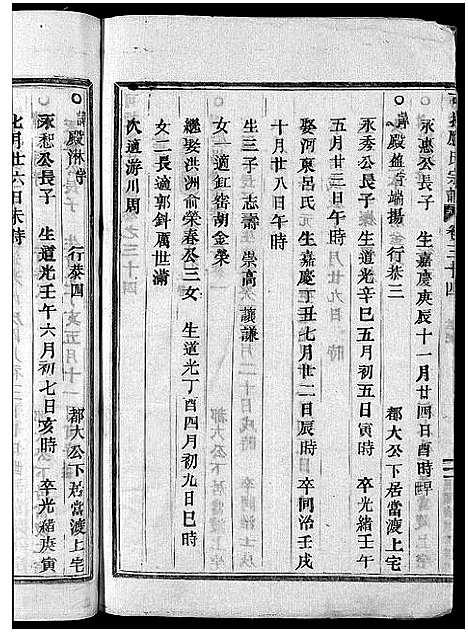 應氏宗譜 卷三十四
永惠公長子 生嘉慶庚辰十一月廿四日酉時 早
殿蘊 字端揚 行恭三 都大公下居當渡上宅
永秀公長子 生道光辛巳五月初五日寅時 卒光緒壬午
五月廿三日午時
娶河東呂氏 生嘉慶丁丑七月廿二日辰時 卒同治壬戌
十月廿八日午時
生三子 長志壽 崇高 讓謙
女一適缸窰胡金榮
繼娶洪洲俞榮春公三女 生道光丁酉四月初九日巳時
女二長適郭針厲世滿
次適游川周
殿淋 行恭四 都大公下居當渡上宅
永恕公長子 生道光壬午六月初七日亥時 卒光緒庚寅
七月廿六日未時